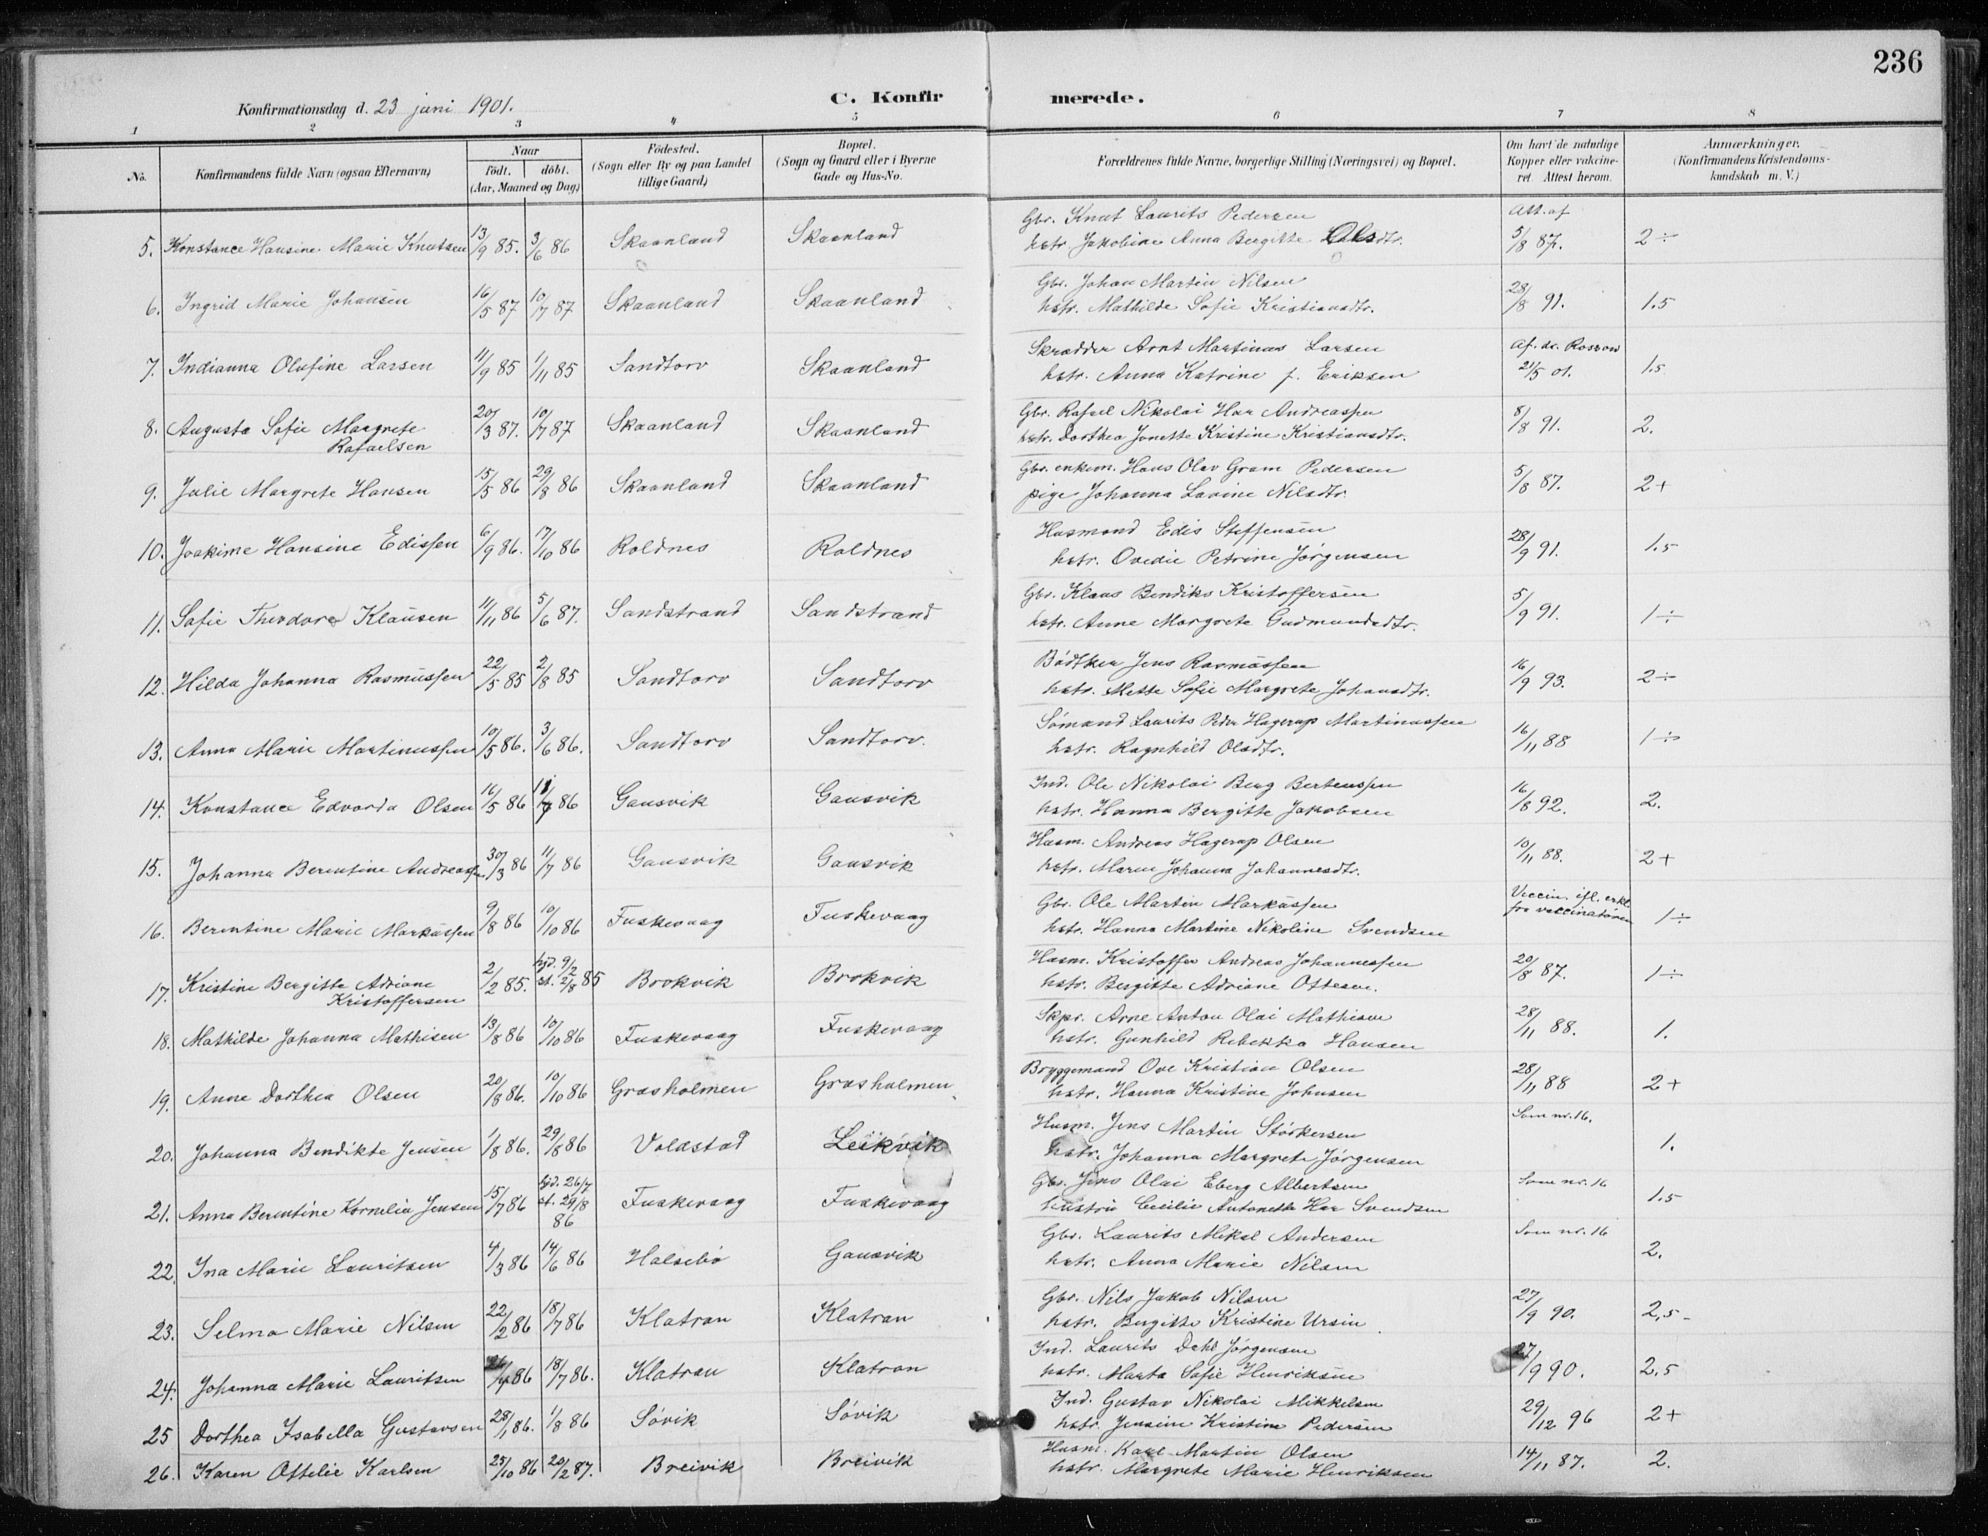 236
Konfirmationsdag d. 23 juni 1901.
C. Konfirmerede.
1 2 3 4 5 6 7 8
No. Konfirmandens fulde Navn (ogsaa Efternavn) Naar født. døbt. (Aar, Maaned og Dag) Fødested. (Sogn eller By og paa Landet tillige Gaard) Bopæl. (Sogn og Gaard eller i Byerne Gade og Hus-No. Forældrenes fulde Navne, borgerlige Stilling (Næringsvei) og Bopæl. Om havt de naturlige Kopper eller vaccineret. Attest herom. Anmærkninger. (Konfirmandens Kristendomskundskab m. V.)
5. Konstance Hansine Marie Knutsen 13/9 85. 3/6 86 Skaanland Skaanland Gbr. Knut Laurits Pedersen Att. af
hstr. Jakobine Anna Bergitte Olsdtr. 5/8 87. 2÷
6. Ingrid Marie Johansen 16/5 87 10/7 87 Skaanland Skaanland Gbr. Johan Martin Nilsen
hstr. Mathilde Sofie Kristiansdtr. 28/8 91. 1.5
7. Indianna Olufine Larsen 11/9 85 1/11 85 Sandtorv Skaanland Skrædder Arnt Martinus Larsen Af. dr. Rossow
hstr. Anna Katrine f. Eriksen 21/5 01. 1.5
8. Augusta Sofie Margrete 20/3 87. 10/7 87 Skaanland Skaanland Gbr. Rafael Nikolai Har Andreassen
Rafaelsen hstr. Dorthea Jonette Kristine Kristiansdtr. 8/8 91. 2.
9. Julie Margrete Hansen 15/5 86 29/8 86 Skaanland Skaanland Gbr. enkem. Hans Olav Gram Pedersen
pige Johanna Lavine Nilsdtr. 5/8 87. 2+
10. Joakime Hansine Edissen 6/9 86. 17/10 86 Roldnes Roldnes Husmand Edis Steffensen
hstr. Ovedie Petrine Jørgensen 28/9 91. 1.5
11. Sofie Theodore Klausen 11/11 86 5/6 87. Sandstrand Sandstrand Gbr. Klaus Bendiks Kristoffersen
hstr. Anne Margrete Gudmundsdtr. 5/9 91. 1÷
12. Hilda Johanna Rasmussen 22/5 85 2/8 85 Sandtorv Sandtorv Bødtker Jens Rasmussen
hstr. Mette Sofie Margrete Johansdtr. 16/9 93. 2÷
13. Anna Marie Martinussen 10/5 86. 3/6 86. Sandtorv Sandtorv. Sømand Laurits Peder Hagerup Martinussen
hstr. Ragnhild Olsdtr. 16/11 88 1÷
14. Konstance Edvarda Olsen 16/5 86 11/7 86 Gausvik Gausvik Ind. Ole Nikolai Berg Bertenssen
hstr. Hanna Bergitte Jakobsen 16/8 92. 2.
15. Johanna Berentine Andreassen 30/3 86 11/7 86 Gausvik Gausvik Husm. Andreas Hagerup Olsen
hstr. Maren Johanna Johannesdtr. 10/11 88. 2+
16. Berentine Marie Markussen 9/8 86 10/10 86 Fuskevaag Fuskevaag Gbr. Ole Martin Markussen Vaccin. ifl. erkl.
hstr. Hanna Martine Nikoline Svendsen fra vaccinatøren 1÷
17. Kristine Bergitte Adriane 2/2 85. hjd. 9/2 st. 2/8 85 Brokvik Brokvik Husm. Kristoffer Andreas Johannessen
Kristoffersen hstr. Bergitte Adriane Ottesen. 20/8 87. 1÷
18. Mathilde Johanna Mathisen 13/8 86 10/10 86 Fuskevaag Fuskevaag Skpr. Arne Anton Olai Mathisen
hstr. Gunhild Rebekka Hansen 28/11 88. 1.
19. Anne Dorthea Olsen 20/8 86. 10/10 86 Græsholmen Græsholmen Bryggemand Ove Kristian Olsen
hstr. Hanna Kristine Johnsen 28/11 88 2+
20. Johanna Bendikte Jensen 1/8 86. 29/8 86 Voldstad Leikvik Husm. Jens Martin Størkersen Som nr. 16.
hstr. Johanna Margrete Jørgensen 1.
21. Anna Berentine Kornelia Jensen 15/7 86 hjd. 26/7 st. 29/8 86 Fuskevaag Fuskevaag Gbr. Jens Olai Eberg Albertsen Som nr. 16
hustru Cecilie Antonette Har Svendsen 1.5
22. Ina Marie Lauritsen 4/3 86 14/6 86 Halsebø Gausvik Gbr. Laurits Mikal Andersen Som nr. 16
hstr. Anna Marie Nilsen 2.
23. Selma Marie Nilsen 22/2 86 18/7 86 Klatran Klatran Gbr. Nils Jakob Nilsen
hstr. Bergitte Kristine Ursin 27/9 90. 2,5-
24. Johanna Marie Lauritsen 86 18/7 86. Klatran Klatran Ind. Laurits Dahl Jørgensen
hstr. Marta Sofie Henriksen 27/9 90. 2,5
25 Dorthea Isabella Gustavsen 28/1 86. 1/8 86 Søvik Søvik Ind. Gustav Nikolai Mikkelsen
hstr. Jensine Kristine Pedersen 29/12 96 2+
26. Karen Ottelie Karlsen 25/10 86 20/2 87. Breivik Breivik Husm. Karl Martin Olsen
hstr. Margrete Marie Henriksen 14/11 87. 2.